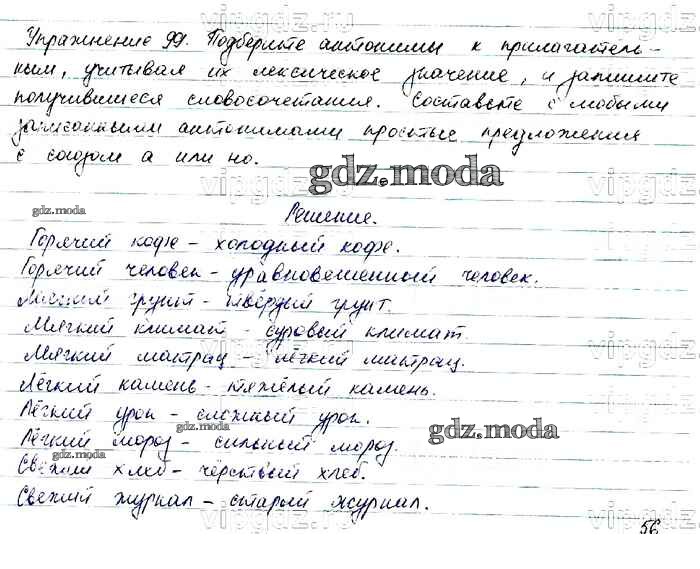 Упражнение 99. Подберите антонимы к прилагатель-
ным, учитывая их лексическое значение, и запишите
получившиеся словосочетания. Составьте с любыми
записанными антонимами простые предложения
с союзом а или но.
gdz.moda
gdz.moda
Решение.
Горячий кофе - холодный кофе.
Горячий человек - уравновешенный человек.
Мягкий грунт - твёрдый грунт.
Мягкий климат - суровый климат.
Мягкий матрац - лёгкий матрац.
Лёгкий камень - тяжёлый камень.
Лёгкий урок - сложный урок.
gdz.moda
Лёгкий мороз - сильный мороз.
gdz.moda
gdz.moda
Свежий хлеб - чёрствый хлеб.
Свежий журнал - старый журнал.
56
vipgdz.ru